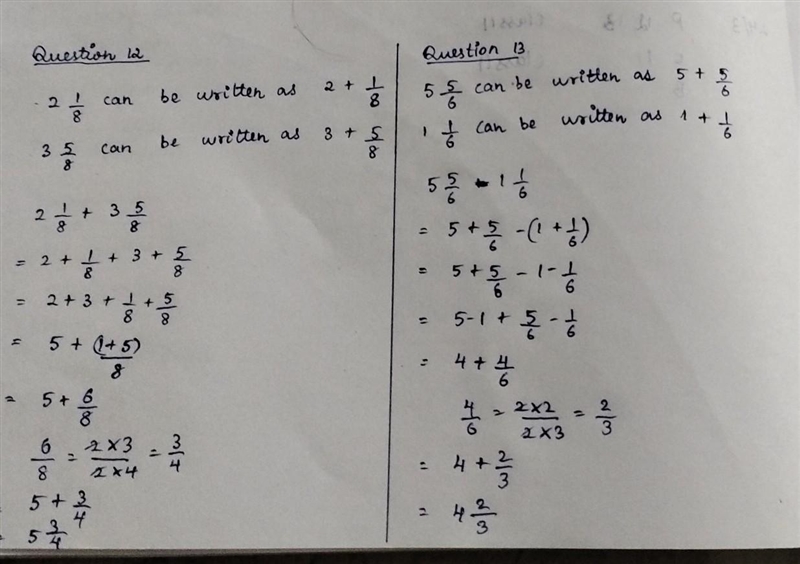 Question 12
2 1/8 can be written as 2 + 1/8
3 5/8 can be written as 3 + 5/8
2 1/8 + 3 5/8
= 2 + 1/8 + 3 + 5/8
= 2 + 3 + 1/8 + 5/8
= 5 + (1+5)/8
= 5 + 6/8
6/8 = 2×3/2×4 = 3/4
= 5 + 3/4
= 5 3/4
Question 13
5 5/6 can be written as 5 + 5/6
1 1/6 can be written as 1 + 1/6
5 5/6 - 1 1/6
= 5 + 5/6 - (1 + 1/6)
= 5 + 5/6 - 1 - 1/6
= 5-1 + 5/6 - 1/6
= 4 + 4/6
4/6 = 2×2/2×3 = 2/3
= 4 + 2/3
= 4 2/3